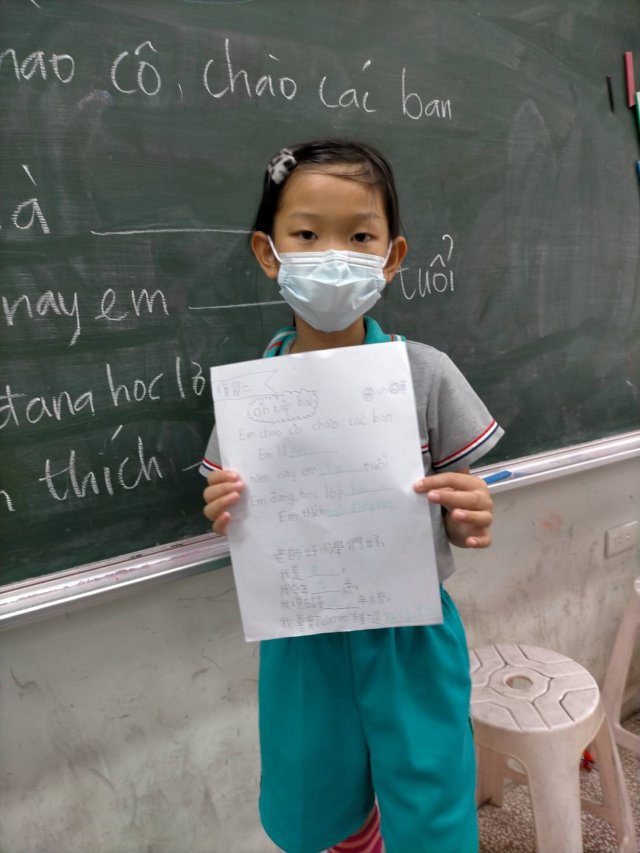 hào cô, chào các bạn
là
nay em tuổi
đang học lớ
thích
ôn tập hai
Em chào cô chào các bạn
Em là An
năm nay em chín tuổi
Em đang học lớp hai
Em thích
老師好同學們好,
我是
我今年 歲,
我現在讀 年級,
我喜歡